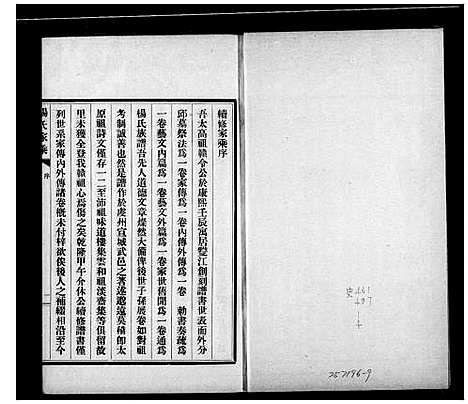 續修家乘序
吾太高祖贛令公於康熙壬辰寓居雙江創刻譜書世表而外分
邱墓祭法爲一卷家傳爲一卷內傳外傳爲一卷勅書奏疏爲
一卷藝文內篇爲一卷藝文外篇爲一卷家世舊聞爲一卷通爲
楊氏族譜吾先人道德文章燦然大備俾後世子孫展卷如對祖
考制誠善也然是譜作於虔州宣城武邑之著述遐遠莫稽卽太
原祖詩文僅存一二至沛祖味道樓集雲和祖淡齋集等俱留故
里未獲全登我贛祖心焉傷之矣乾隆甲午介休公續修譜書僅
列世系家傳內外傳諸卷槪未付梓欲俟後人之補綴相沿至今
楊氏家乘
序
一
257196-9